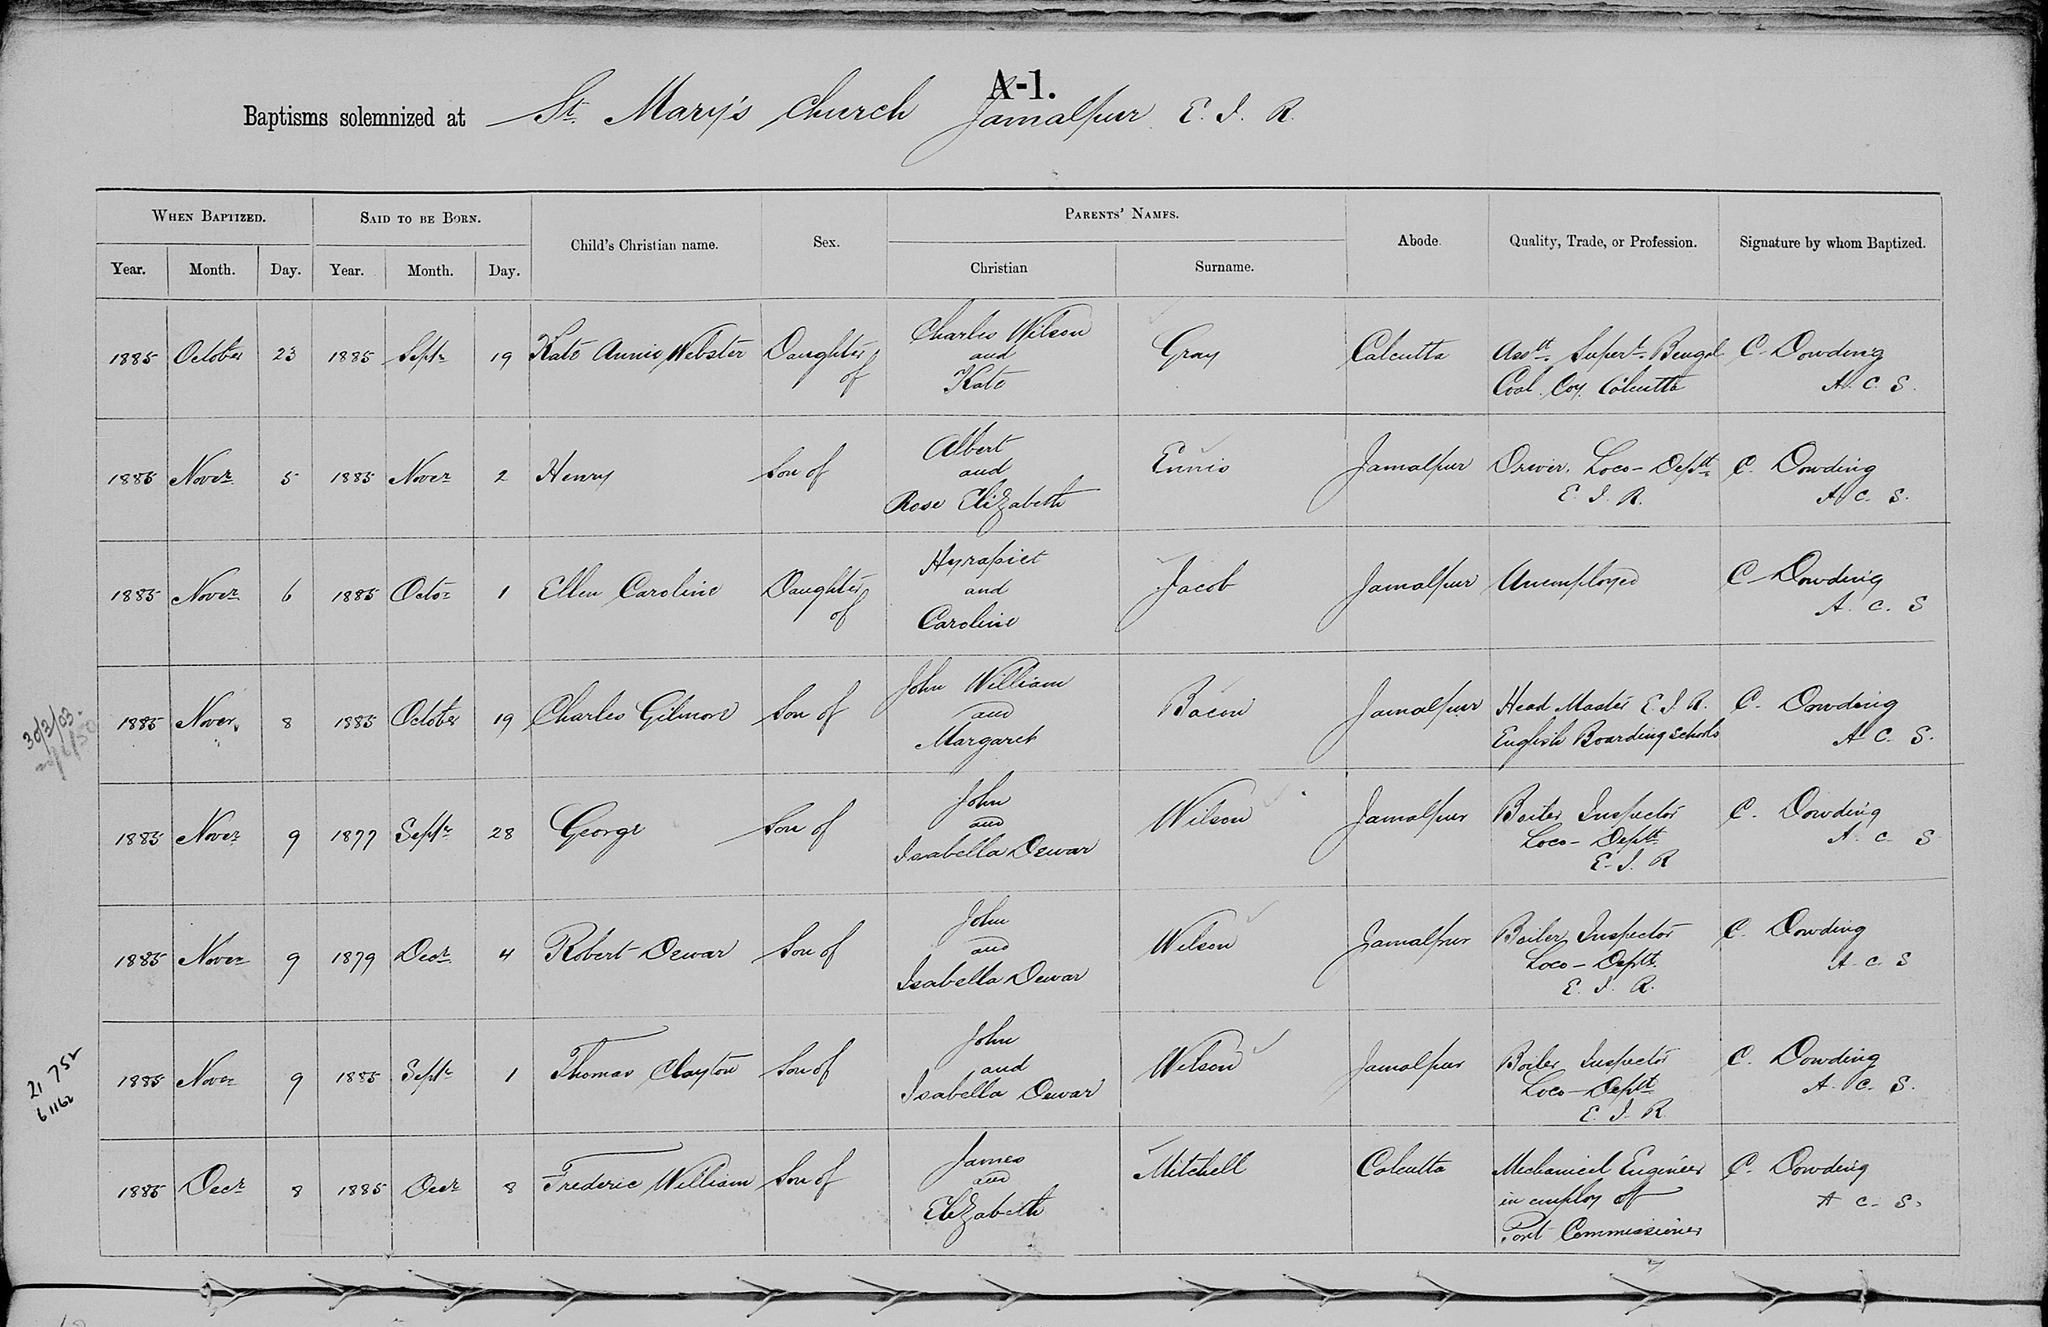 A-1.
Baptisms solemnized at St. Mary's Church Jamalpur E. I. R.
When Baptized. Said to be Born. Child's Christian name. Sex. Parents' Names. Abode. Quality, Trade, or Profession. Signature by whom Baptized.
Year. Month. Day. Year. Month. Day. Christian Surname.
1885 October 23 1885 Septr 19 Kate Annie Webster Daughter of Charles Wilson and Kate Gray Calcutta Asstt. Supert. Bengal Coal Coy. Calcutta C. Dowding A. C. S.
1885 Novr 5 1885 Novr 2 Henry Son of Albert and Rose Elizabeth Ennis Jamalpur Driver, Loco-Deptt. E. I. R. C. Dowding A. C. S.
1885 Novr 6 1885 Octor 1 Ellen Caroline Daughter of Hyrapiet and Caroline Jacob Jamalpur Unemployed C Dowding A. C. S
1885 Novr. 8 1885 October 19 Charles Gilmore Son of John William and Margaret Bacon Jamalpur Head Master E. I. R. English Boarding Schools C. Dowding A. C. S.
30/3/03.
1885 Novr 9 1877 Septr 28 George Son of John and Isabella Dewar Wilson Jamalpur Boiler Inspector Loco-Deptt. E. I. R C. Dowding A. C. S
1885 Novr 9 1879 Decr. 4 Robert Dewar Son of John and Isabella Dewar Wilson Jamalpur Boiler Inspector Loco-Deptt. E. I. R. C. Dowding A. C. S
1885 Novr 9 1885 Septr 1 Thomas Clayton Son of John and Isabella Dewar Wilson Jamalpur Boiler Inspector Loco-Deptt E. I. R C. Dowding A. C. S.
1885 Decr 8 1885 Decr 8 Frederic William Son of James and Elizabeth Mitchell Calcutta Mechanical Engineer in employ of Port Commissioner C. Dowding A. C. S.